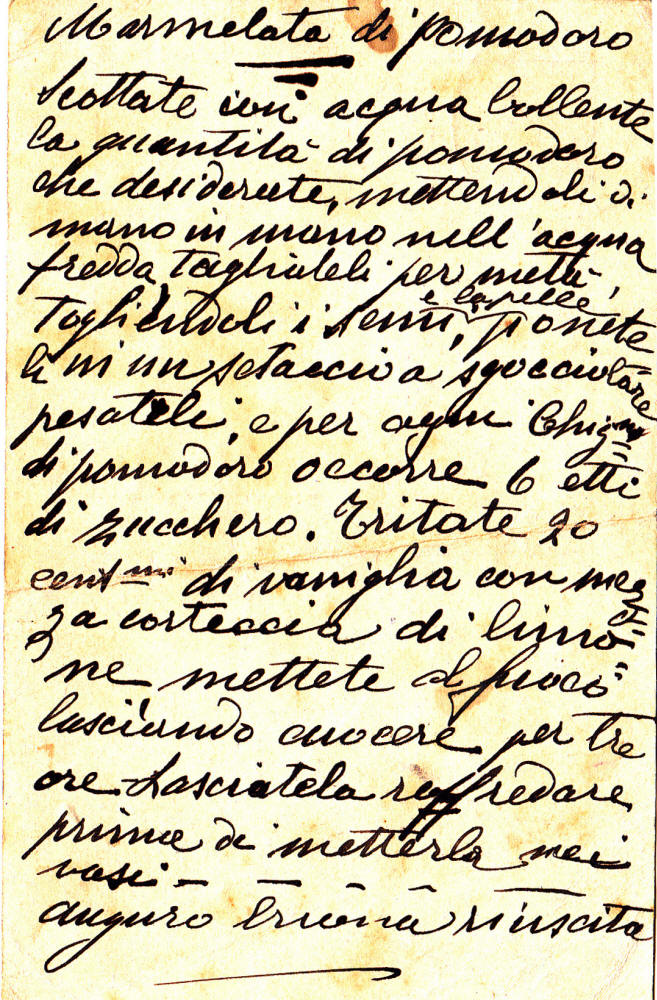 Marmelata di pomodoro
Scottate con acqua bollente
la quantità di pomodoro
che desiderate, mettendoli di
mano in mano nell'acqua
fredda, tagliateli per metà,
togliendoli i semi, e la pelle, ponete
li in un setaccio a sgocciolare
pesateli, e per ogni Chig.mo
di pomodoro occorre 6 etti
di zucchero. Tritate 20
cent.mi di vaniglia con mez
za corteccia di limo=
ne mettete al fuoco
lasciando cuocere per tre
ore - Lasciatela raffredare
prima di metterla nei
vasi -
auguro buona riuscita